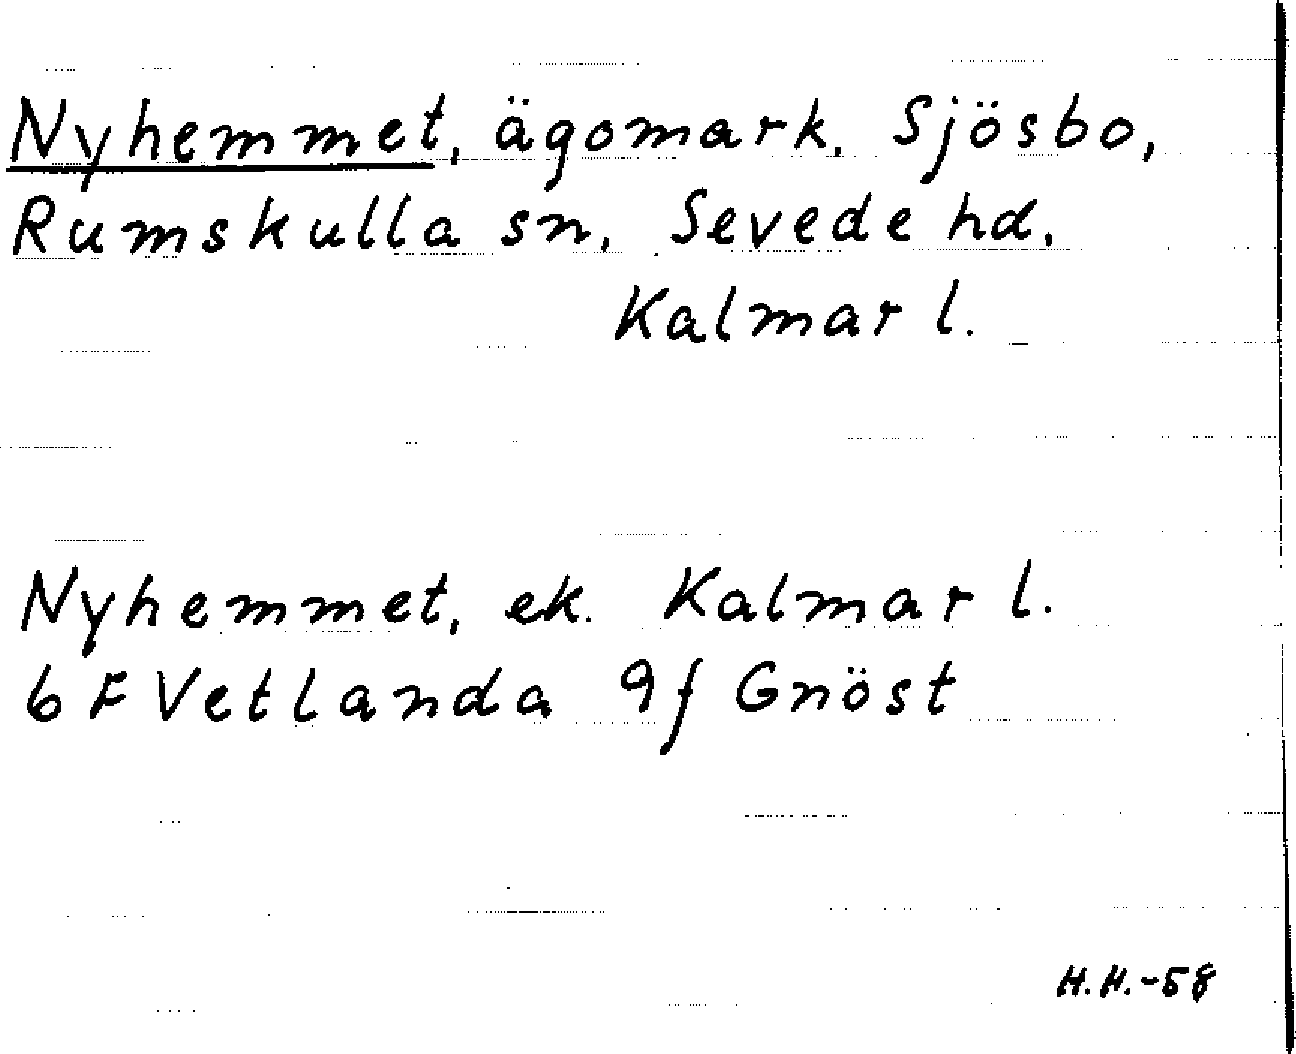 Nyhemmet, ägomark. Sjösbo,
Rumskulla sn. Sevede hd.
Kalmar l.
Nyhemmet, ek. Kalmar l.
6 F Vetlanda 9f Gnöst
H.H.-58